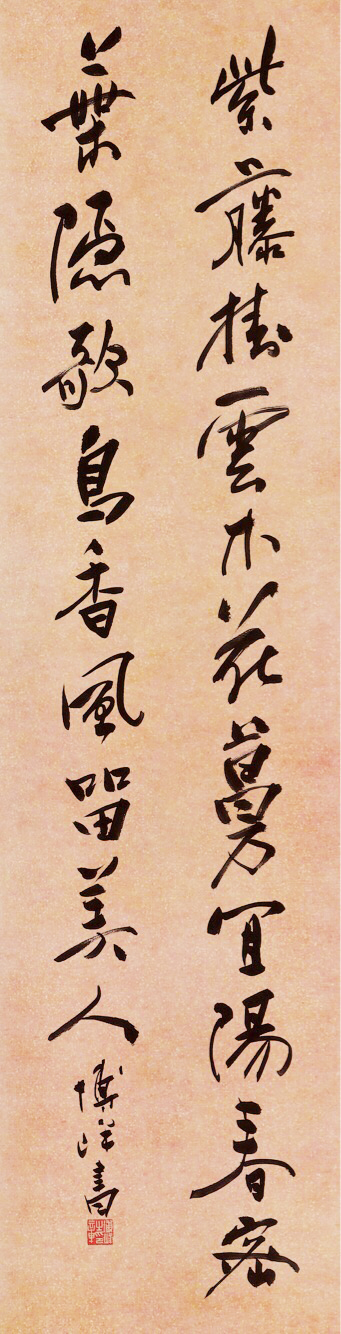 紫藤掛雲木花蔓宜陽春密
葉隱歌鳥香風留美人
書